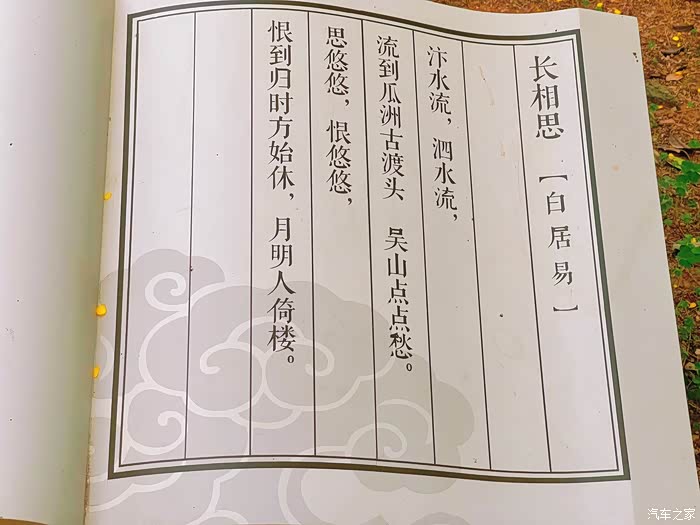 长相思 【白居易】
汴水流，泗水流，
流到瓜洲古渡头 吴山点点愁。
思悠悠，恨悠悠，
恨到归时方始休，月明人倚楼。
汽车之家